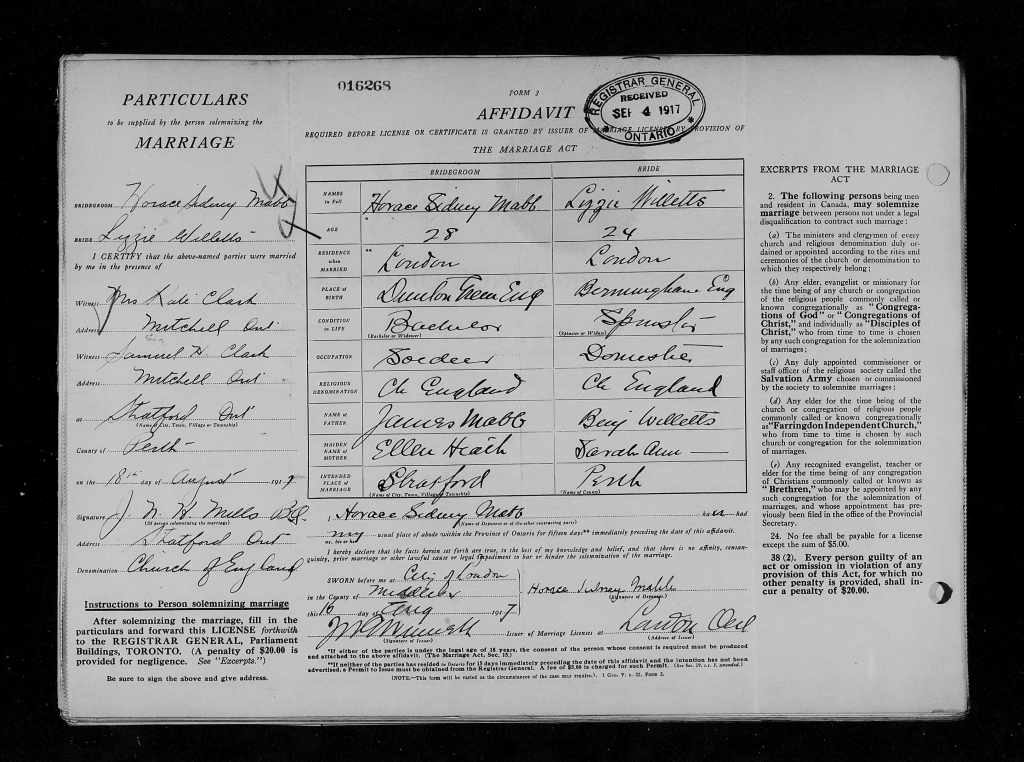 016268
PARTICULARS
to be supplied by the person solemnizing the
MARRIAGE
BRIDEGROOM Horace Sidney Mabb
BRIDE Lizzie Willetts
I CERTIFY that the above-named parties were married
by me in the presence of
Witness Mrs Kate Clark
Address Mitchell Ont
Witness Samuel H Clark
Address Mitchell Ont
at Stratford Ont
(Name of City, Town, Village or Township)
County of Perth
on the 18th day of August 1917
Signature J. W. Mills
(Of person solemnizing the marriage)
Address Stratford Ont
Denomination Church of England
Instructions to Person solemnizing marriage
After solemnizing the marriage, fill in the
particulars and forward this LICENSE forthwith
to the REGISTRAR GENERAL, Parliament
Buildings, TORONTO. (A penalty of $20.00 is
provided for negligence. See "Excerpts.")
Be sure to sign the above and give address.
FORM 2
AFFIDAVIT
REGISTRAR GENERAL
RECEIVED
SEP 4 1917
ONTARIO
REQUIRED BEFORE LICENSE OR CERTIFICATE IS GRANTED BY ISSUER OF MARRIAGE LICENSES BY PROVISION OF
THE MARRIAGE ACT
BRIDEGROOM BRIDE
NAMES in Full Horace Sidney Mabb Lizzie Willetts
AGE 28 24
RESIDENCE when MARRIED ** London London
PLACE OF BIRTH Dunton Green Eng Birmingham Eng
CONDITION in LIFE Bachelor Spinster
(Bachelor or Widower) (Spinster or Widow)
OCCUPATION Soldier Domestic
RELIGIOUS DENOMINATION Ch England Ch England
NAME of FATHER James Mabb Benj Willetts
MAIDEN NAME of MOTHER Ellen Heath Sarah Ann
INTENDED PLACE of MARRIAGE Stratford Perth
(Name of City, Town, Village or Township) (Name of County)
I, Horace Sidney Mabb have had
(Name of Deponent or of the other contracting party)
my usual place of abode within the Province of Ontario for fifteen days** immediately preceding the date of this affidavit.
my, his or her
I hereby declare that the facts herein set forth are true, to the best of my knowledge and belief, and that there is no affinity, consan-
guinity, prior marriage or other lawful cause or legal impediment to bar or hinder the solemnization of the marriage.
SWORN before me at City of London
in the County of Middlesex
Horace Sidney Mabb
(Signature of Deponent)
this 16 day of Aug 1917
Issuer of Marriage Licenses at London Ont
(Signature of Issuer) (Address of Issuer)
*If either of the parties is under the legal age of 18 years, the consent of the person whose consent is required must be produced
and attached to the above affidavit. (The Marriage Act, Sec. 15.)
**If neither of the parties has resided in Ontario for 15 days immediately preceding the date of this affidavit and the intention has not been
advertised, a Permit to Issue must be obtained from the Registrar General. A fee of $5.00 is charged for such Permit.
(NOTE.—This form will be varied as the circumstances of the case may require.)
EXCERPTS FROM THE MARRIAGE
ACT
2. The following persons being men
and resident in Canada, may solemnize
marriage between persons not under a legal
disqualification to contract such marriage:
(a) The ministers and clergymen of every
church and religious denomination duly or-
dained or appointed according to the rites and
ceremonies of the church or denomination to
which they respectively belong;
(b) Any elder, evangelist or missionary for
the time being of any church or congregation
of the religious people commonly called or
known congregationally as "Congrega-
tions of God" or "Congregations of
Christ," and individually as "Disciples of
Christ," who from time to time is chosen
by any such congregation for the solemnization
of marriages;
(c) Any duly appointed commissioner or
staff officer of the religious society called the
Salvation Army chosen or commissioned
by the society to solemnize marriages;
(d) Any elder for the time being of the
church or congregation of religious people
commonly called or known congregationally
as "Farringdon Independent Church,"
who from time to time is chosen by such
church or congregation for the solemnization
of marriages.
(e) Any recognized evangelist, teacher or
elder for the time being of any congregation
of Christians commonly called or known as
"Brethren," who may be appointed by any
such congregation for the solemnization of
marriages, and whose appointment has pre-
viously been filed in the office of the Provincial
Secretary.
24. No fee shall be payable for a license
except the sum of $5.00.
38 (2). Every person guilty of an
act or omission in violation of any
provision of this Act, for which no
other penalty is provided, shall in-
cur a penalty of $20.00.